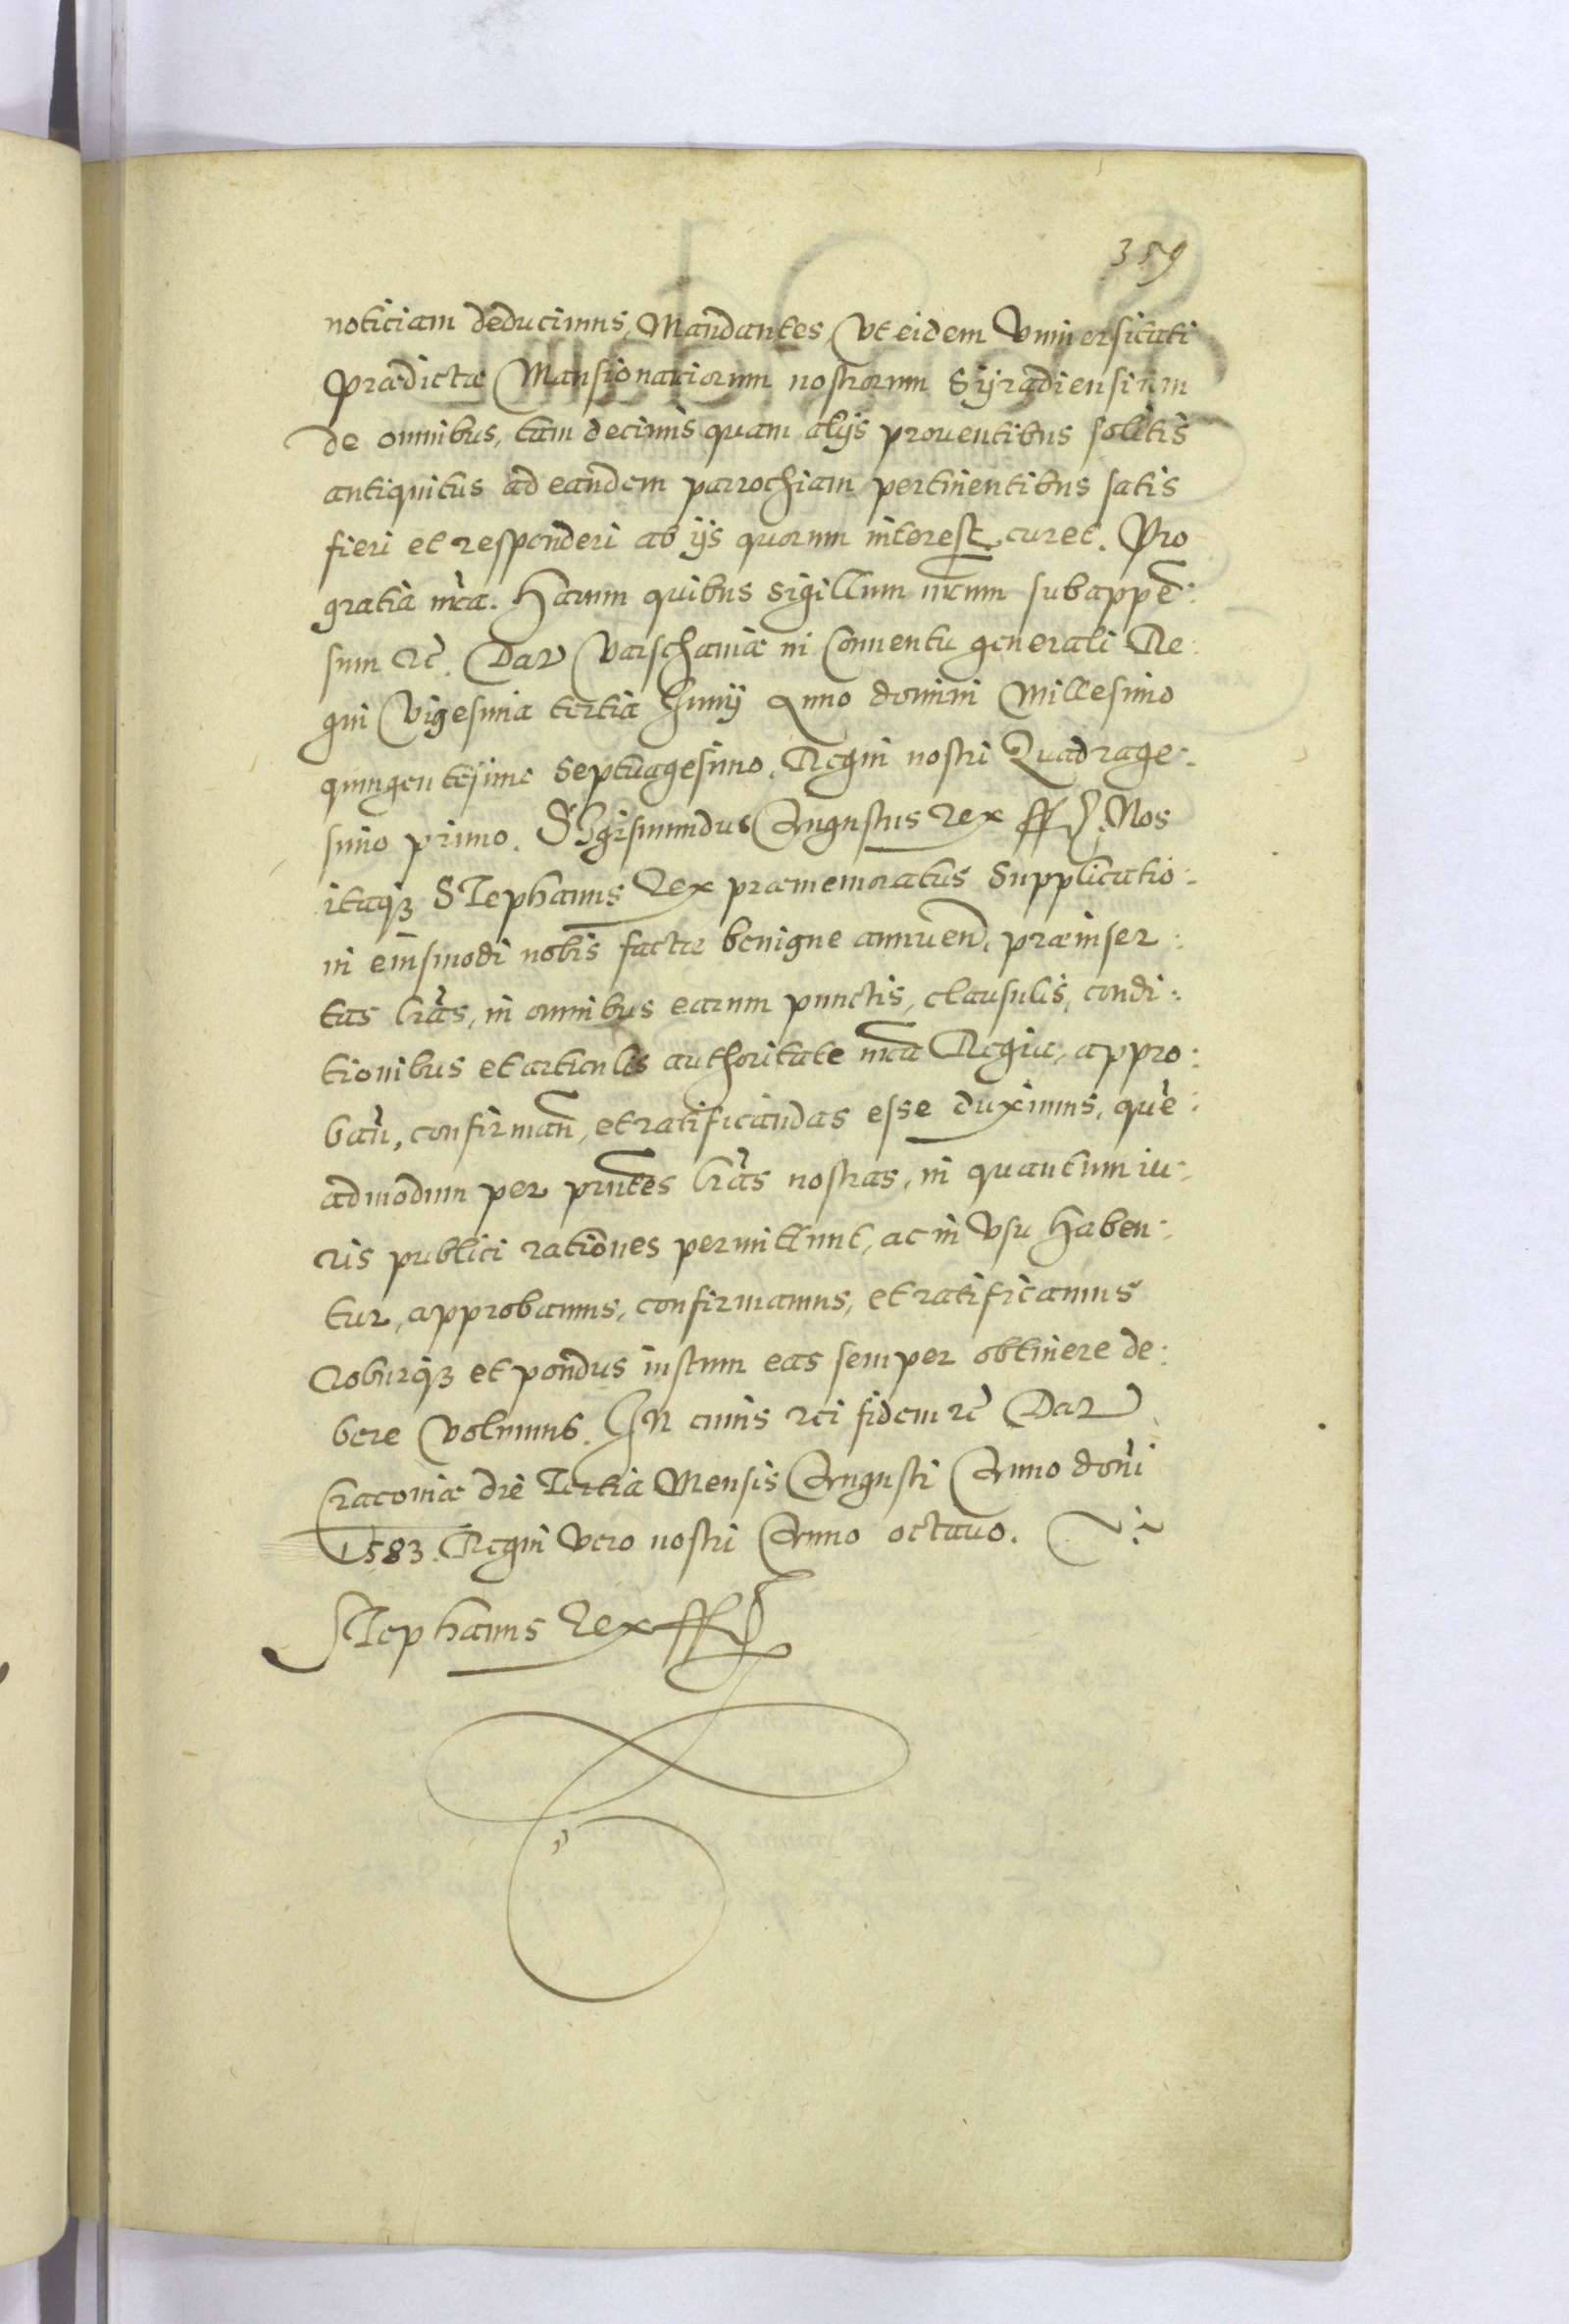 359
noticiam deducimus, Mandantes, Vt eidem Vniuersitati
Prædictæ Mansionariorum nostrorum Syradiensium
de omnibus, tam decimis quam alijs prouentibus solitis
antiquitus ad eandem parrochiam pertinentibus satis
fieri et responderi ab ijs quorum interest curet. Pro
gratia nr̃a. Harum quibus sigillum nr̃um subappẽ:
sum &c̃. Dat Varschauiæ in Conuentu generali Re:
gni Vigesima tertia Junij Anno domini Millesimo
quingentesimo Septuagesimo. Regni nostri Quadrage:
simo primo. Sigismundus Augustus Rex sst. Nos
itaq₃ Stephanus Rex præmemoratus Supplicatio:
ni eiusmodi nobis factæ benigne annuen̄. præinser:
tas lr̃as, in omnibus earum punctis, clausulis, condi:
tionibus et articulis authoritate nr̃a Regia, appro:
bañ, confirmañ, et ratificandas esse duximus, quẽ:
admodum per pr̃ntes lr̃as nostras, in quantum iu:
ris publici rationes permittunt, ac in vsu haben:
tur, approbamus, confirmamus, et ratificamus
Roburq₃ et pondus iustum eas semper obtinere de:
bere volumus. In cuius rei fidem &c̃ Dat
Cracouiæ die Tertia Mensis Augusti Anno doñi
1583. Regni vero nostri Anno octauo.
Stephanus Rex sst